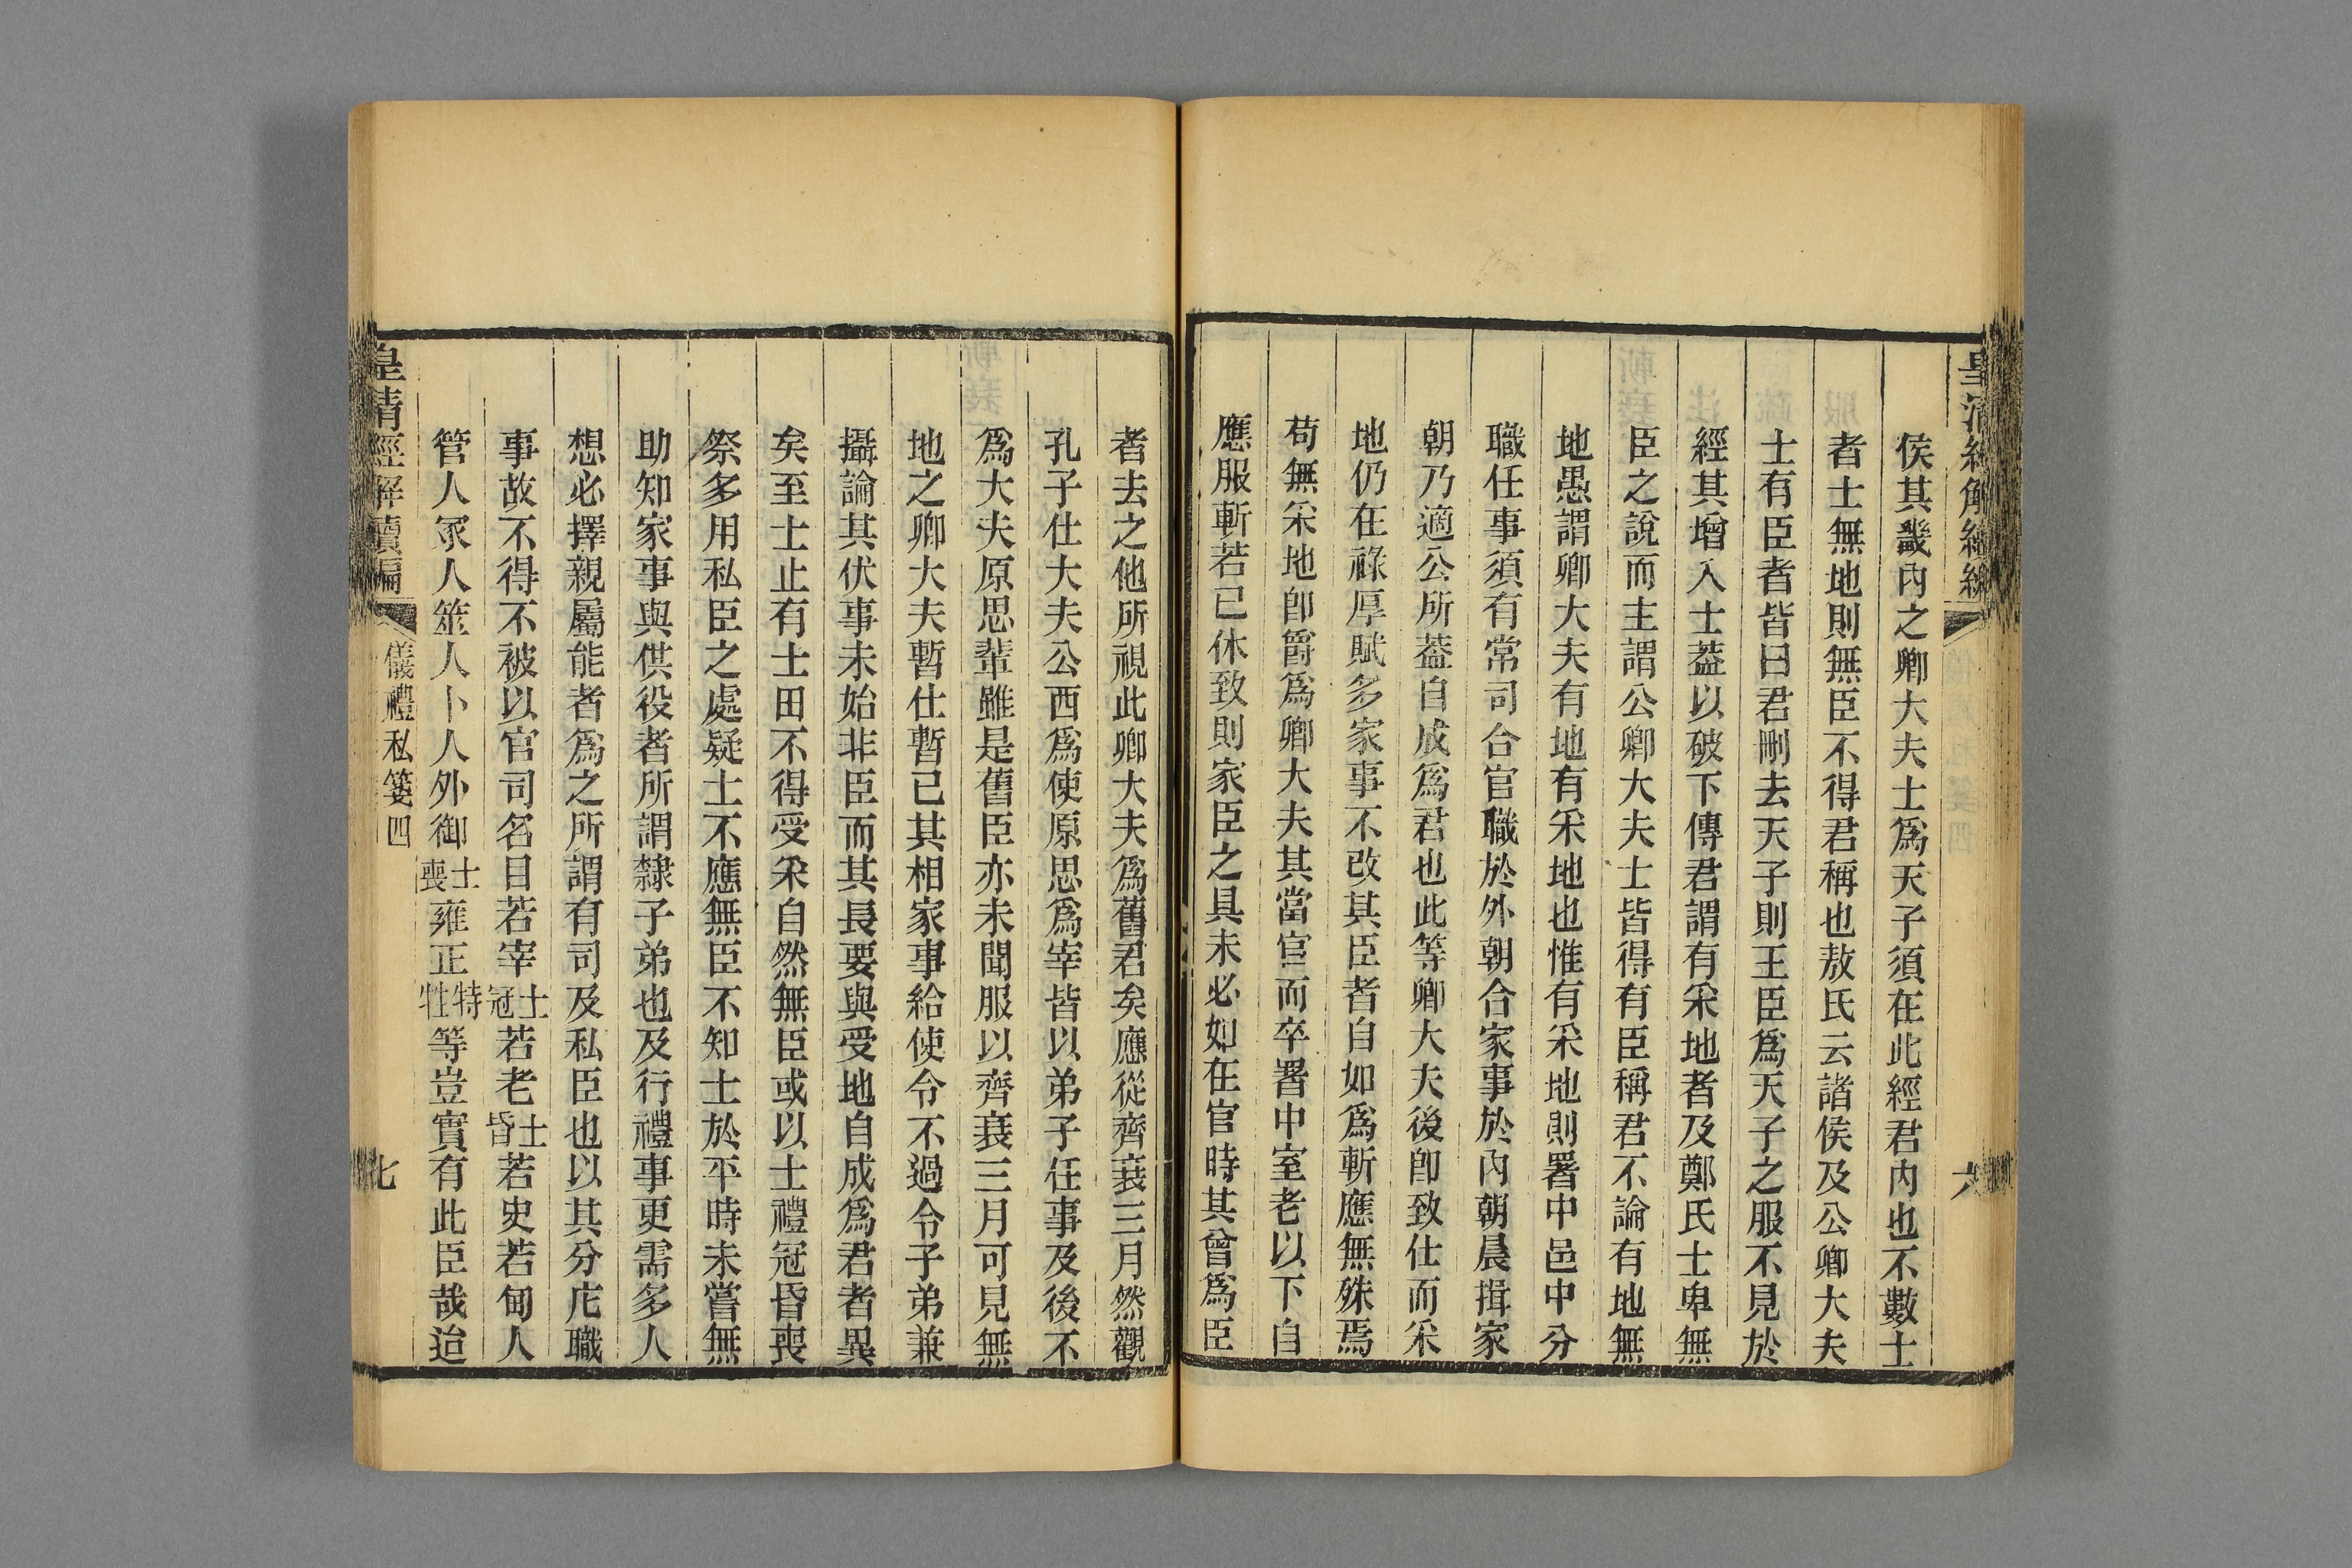 侯其畿內之卿大夫士爲天子須在此經君內也不數士
者士無地則無臣不得君稱也敖氏云諸侯及公卿大夫
士有臣者皆曰君刪去天子則王臣爲天子之服不見於
經其增入士葢以破下傳君謂有采地者及鄭氏士卑無
臣之說而主謂公卿大夫士皆得有臣稱君不論有地無
地愚謂卿大夫有地有采地也惟有采地則署中邑中分
職任事須有常司合官職於外朝合家事於內朝晨揖家
朝乃適公所葢自成爲君也此等卿大夫後卽致仕而采
地仍在祿厚賦多家事不改其臣者自如爲斬應無殊焉
苟無采地卽爵爲卿大夫其當官而卒署中室老以下自
應服斬若已休致則家臣之具未必如在官時其曾爲臣
者去之他所視此卿大夫爲舊君矣應從齊衰三月然觀
孔子仕大夫公西爲使原思爲宰皆以弟子任事及後不
爲大夫原思輩雖是舊臣亦未聞服以齊衰三月可見無
地之卿大夫暫仕暫已其相家事給使令不過令子弟兼
攝論其伏事未始非臣而其長要與受地自成爲君者異
矣至士止有士田不得受采自然無臣或以士禮冠昏喪
祭多用私臣之處疑士不應無臣不知士於平時未嘗無
助知家事與供役者所謂隸子弟也及行禮事更需多人
想必擇親屬能者爲之所謂有司及私臣也以其分庀職
事故不得不被以官司名目若宰士冠若老士昏若史若甸人
管人冢人筮人卜人外御士喪雍正特牲等豈實有此臣哉迨
皇清經解續編 儀禮私箋四 七